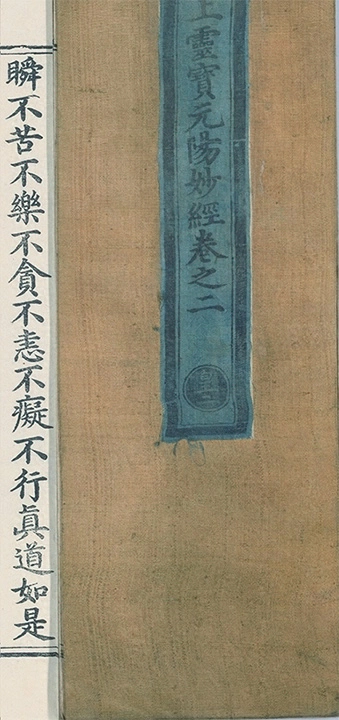 上靈寶元陽妙經卷之二
瞬不苦不樂不貪不恚不癡不行眞道如是